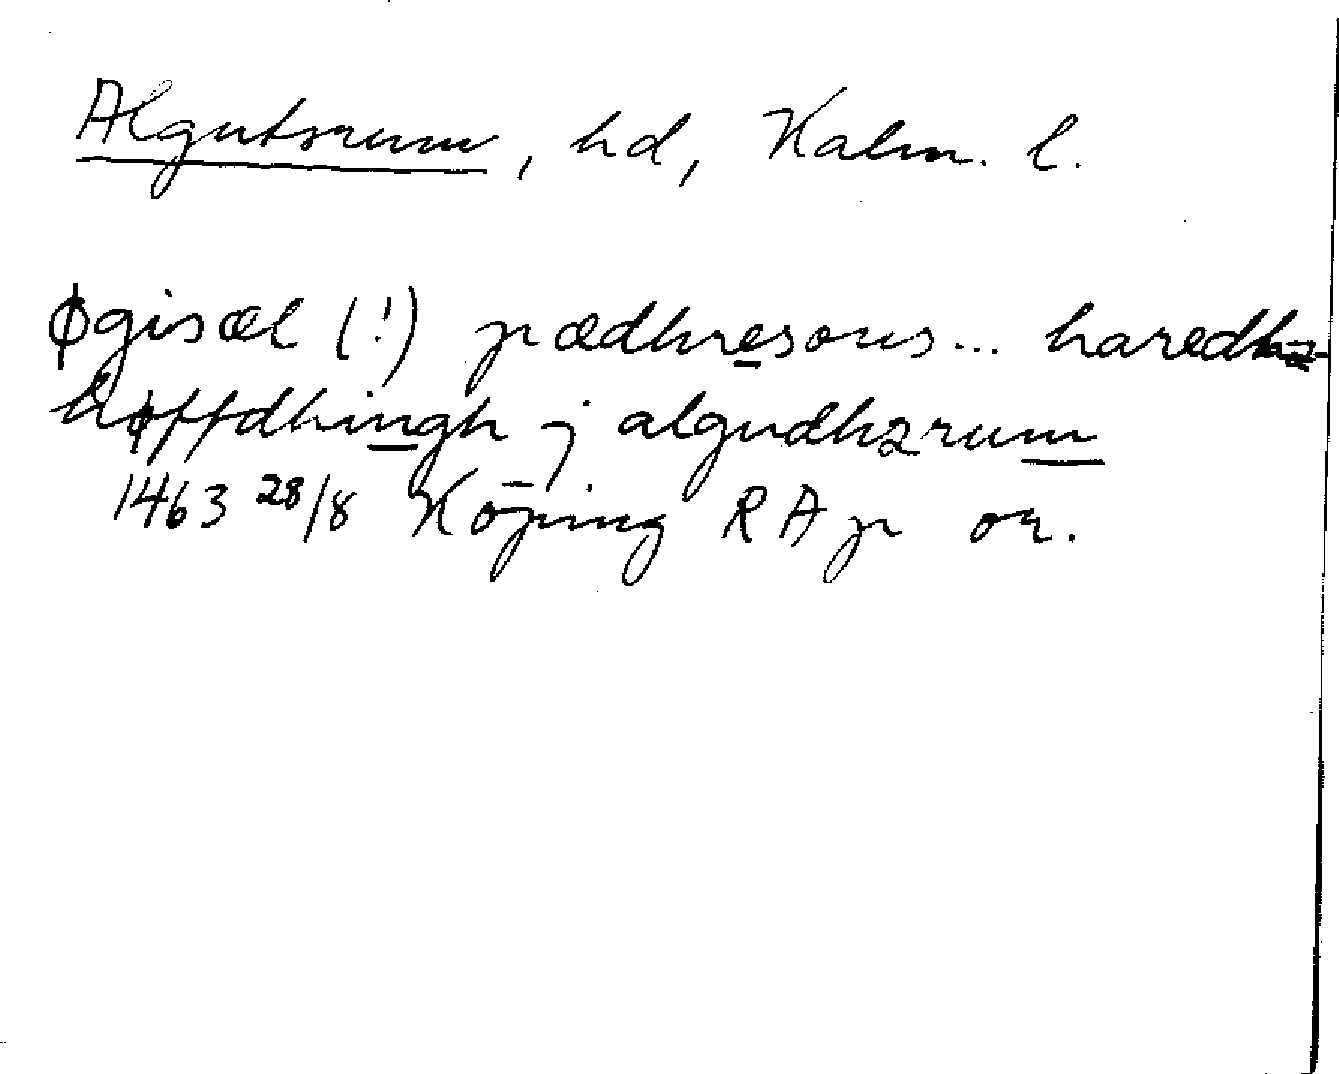 Algutsrum, hd, Kalm. l.
øgisæl (!) pædhresons... haredhz-
høffdhingh j algudhzrum
1463 28/8 Köping RAp or.